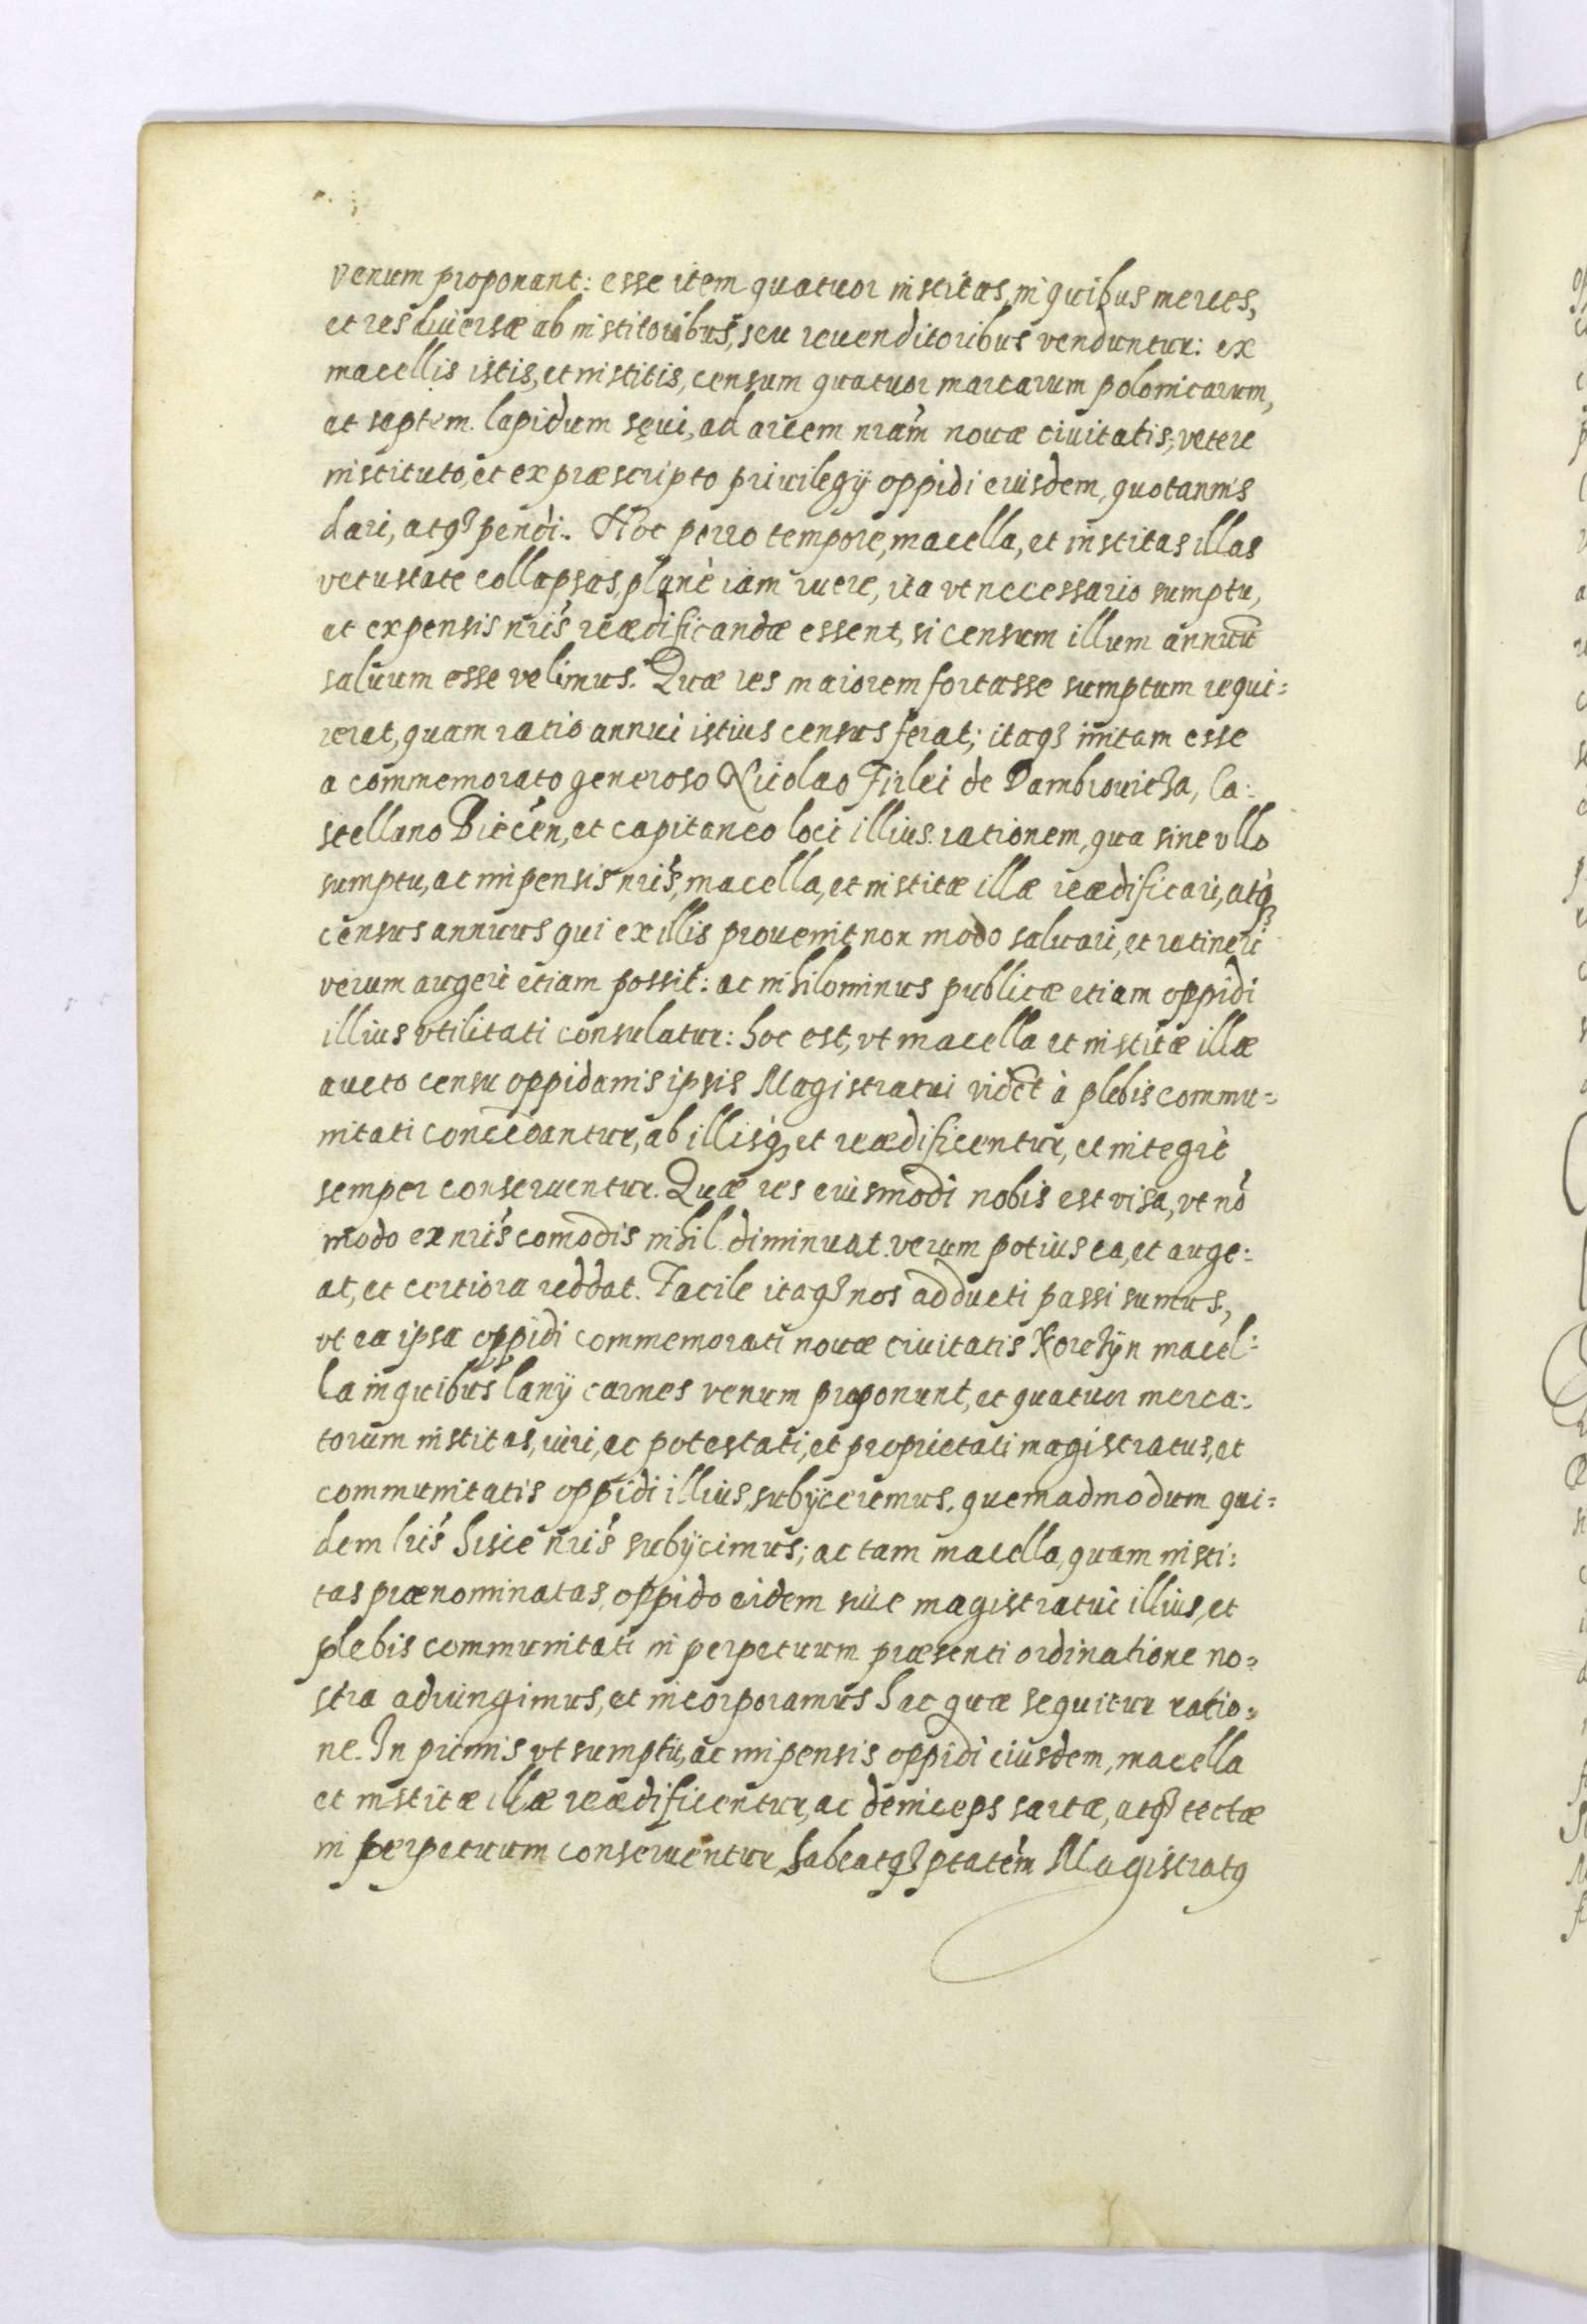 venum proponant: esse item quatuor institas, in quibus merces,
et res diuersæ ab institoribus, seu reuenditoribus venduntur: ex
macellis istis, et institis, censum quatuor marcarum polonicarum,
et septem lapidum sęui, ad arcem nram̃ nouæ ciuitatis, vetere
instituto, et ex præscripto priuilegÿ oppidi eiusdem, quotannis
dari, atq3 pendi. Hoc porro tempore, macella, et institas illas
vetustate collapsas, planè iam ruere, ita vt necessario sumptu,
et expensis nr̃is reædificandæ essent, si censum illum annuũ
saluum esse velimus. Quæ res maiorem fortasse sumptum requi=
rerat, quam ratio annui istius census ferat; itaq3 initam esse
a commemorato generoso Nicolao Firlei de Dambrowicza, Ca:
stellano Biecen̄, et capitaneo loci illius rationem, qua sine vllo
sumptu, ac impensis nr̃is, macella, et institæ illæ reædificari, atq3
census annuus qui ex illis prouenit non modo saluari, et retineri
verum augeri etiam possit: ac nihilominus publicæ etiam oppidi
illius vtilitati consulatur: hoc est, vt macella et institæ illæ
aucto censu oppidanis ipsis Magistratui videt̃ à plebis commu=
nitati concedantur, ab illisq3 et reædificentur, et integrè
semper conseruentur. Quæ res eiusmodi nobis est visa, vt nõ
modo ex nr̃is com̃odis nihil diminuat verum potius ea, et auge:
at, et certiora reddat. Facile itaq3 nos adducti passi sumus,
vt ea ipsa oppidi commemorati nouæ ciuitatis Korczÿn macel:
la in quibus lanÿ carnes venum proponunt, et quatuor merca:
torum institas, iuri, ac potestati, et proprietati magistratus, et
communitatis oppidi illius, subÿceremus, quemadmodum qui=
dem lr̃is hisce nr̃is subÿcimus; ac tam macella, quam insti:
tas prænominatas, oppido eidem siue magistratui illius, et
plebis communitati in perpetuum præsenti ordinatione no=
stra adiungimus, et incorporamus hac quæ sequitur ratio=
ne. In primis vt sumptu, ac impensis oppidi eiusdem, macella
et institæ illæ reædificentur, ac deinceps sartæ, atq3 tectæ
in perpetuum conseruentur, habeatq3 ptatẽm Magistratq